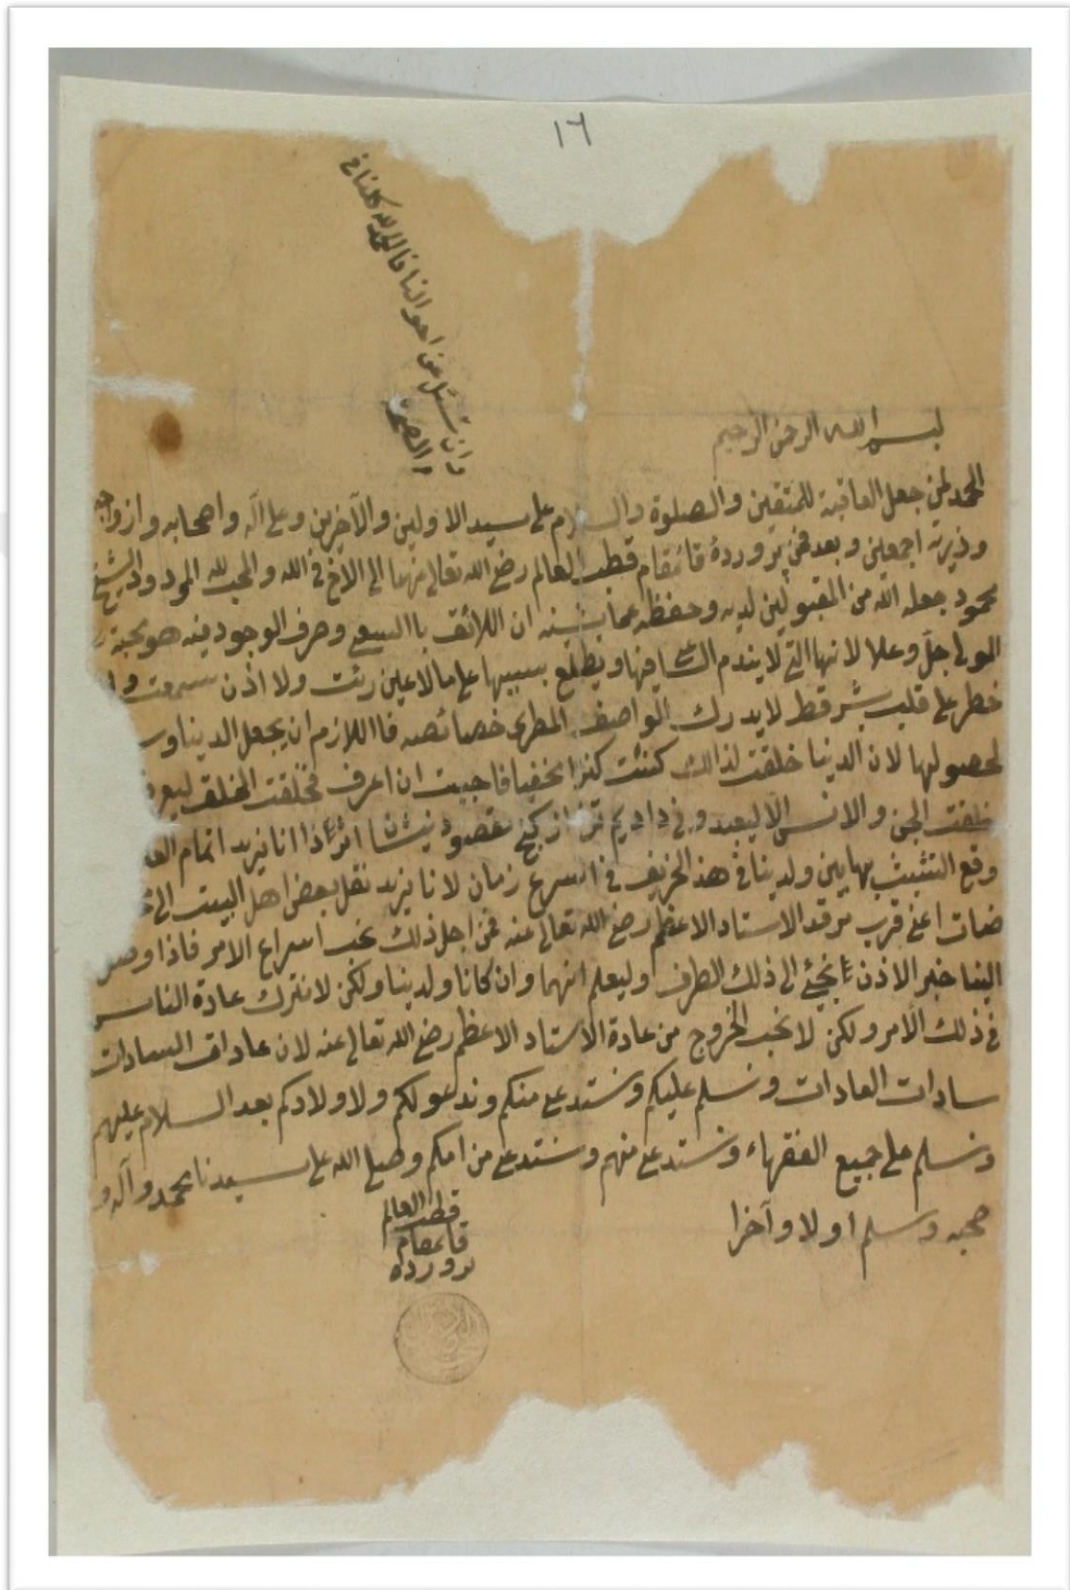 ١٦
وان تسئل عن احوالنا فالحمد لله كلنا في
بسم الله الرحمن الرحيم
الحمد لمن جعل العاقبة للمتقين والصلوة والسلام على سيد الاولين والآخرين وعلى آله واصحابه وازواجه
وذريته اجمعين وبعد فمن پرورده قائمقام قطب العالم رضي الله تعالى عنهما الى الاخ في الله والمحب لله المودود الشيخ
محمود جعله الله من المقبولين لديه وحفظه عما يشينه ان اللائق باالسعي وصرف الوجود فيه هو محبة
المولى جل وعلا لانها التي لا يندم الساعي فيها ويطلع بسببها على مالا عين رئت ولا اذن سمعت ولا
خطر على قلب بشر قط لا يدرك الواصف المطرى خصائصه فااللازم ان يجعل الدينا
لحصولها لان الدينا خلقت لذالك كنت كنزا مخفيا فاحببت ان اعرف فخلقت الخلق ليعر
خلقت الجن والانس الا ليعبدو في داديم ترا از كنج مقصود نشان اثر اذا انا نريد اتمام
وقع التشبث بها بين ولدينا في هذ الخريف في اسرع زمان لانا نريد نقل بعض اهل البيت الى
ضات اعنى قرب مرقد الاستاد الاعظم رضي الله تعالى عنه فمن اجل ذلك نحب اسراع الامر فاذا وصل
الينا خبر الاذن نجئ الى ذلك الطرف وليعلم انهما وان كانا ولدينا ولكن لا نترك عادة الناس
في ذلك الامر ولكن لا نحب الخروج من عادة الاستاد الاعظم رضي الله تعالى عنه لان عادات السادات
سادات العادات ونسلم عليكم ونستدعى منكم وندعو لكم ولاولادكم بعد السلام عليهم
ونسلم على جميع الفقهاء ونستدعى منهم ونستدعى من امكم وصلى الله على سيدنا محمد وآله و
صحبه وسلم اولا وآخرا
قطب العالم
قائمقام
پرورده